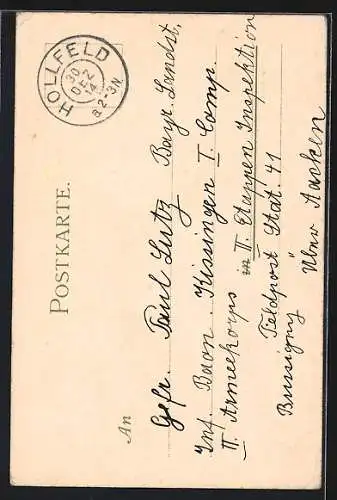 HOLLFELD
30
DEZ
14
N. 2-3 N.
POSTKARTE.
An
Gefr. Paul Lutz Bayr. Landst.
Inf. Baon. Kissingen I. Comp.
II. Armeekorps in II. Etappen Inspektion
Feldpost Stat. 41
Bussigny über Aachen